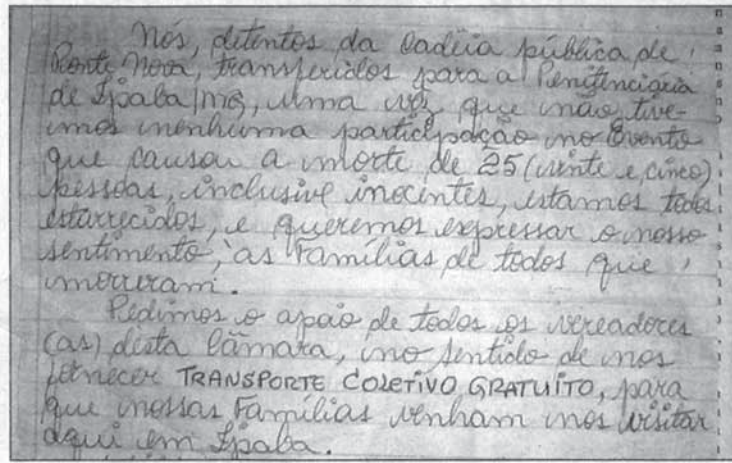 Nós, detentos da Cadeia pública de
Ponte Nova, transferidos para a Penitenciária
de Ipaba/MG, uma vez que não tive-
mos nenhuma participação no Evento
que causou a morte de 25 (vinte e cinco)
pessoas, inclusive inocentes, estamos todos
estarrecidos, e queremos expressar o nosso
sentimento, as Famílias de todos que
morreram.
Pedimos o apoio de todos os vereadores
(as) desta Câmara, no sentido de nos
fornecer TRANSPORTE COLETIVO GRATUITO, para
que nossas Famílias venham nos visitar
aqui em Ipaba.